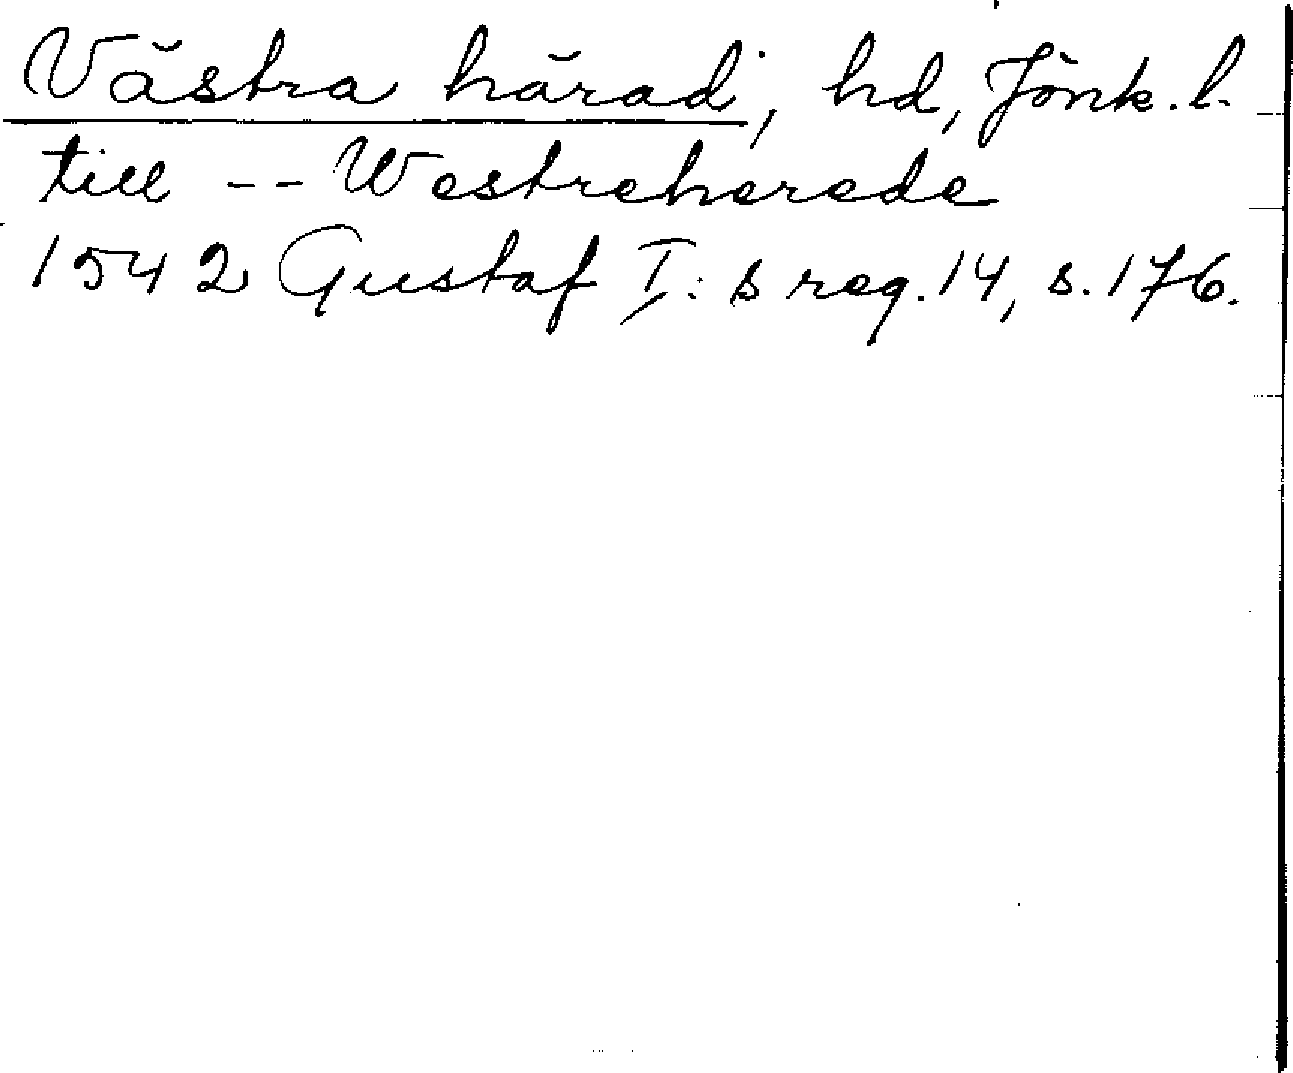 Västra härad, hd, Jönk. l.
till -- Westreherede
1542 Gustaf I: s reg. 14, s. 176.